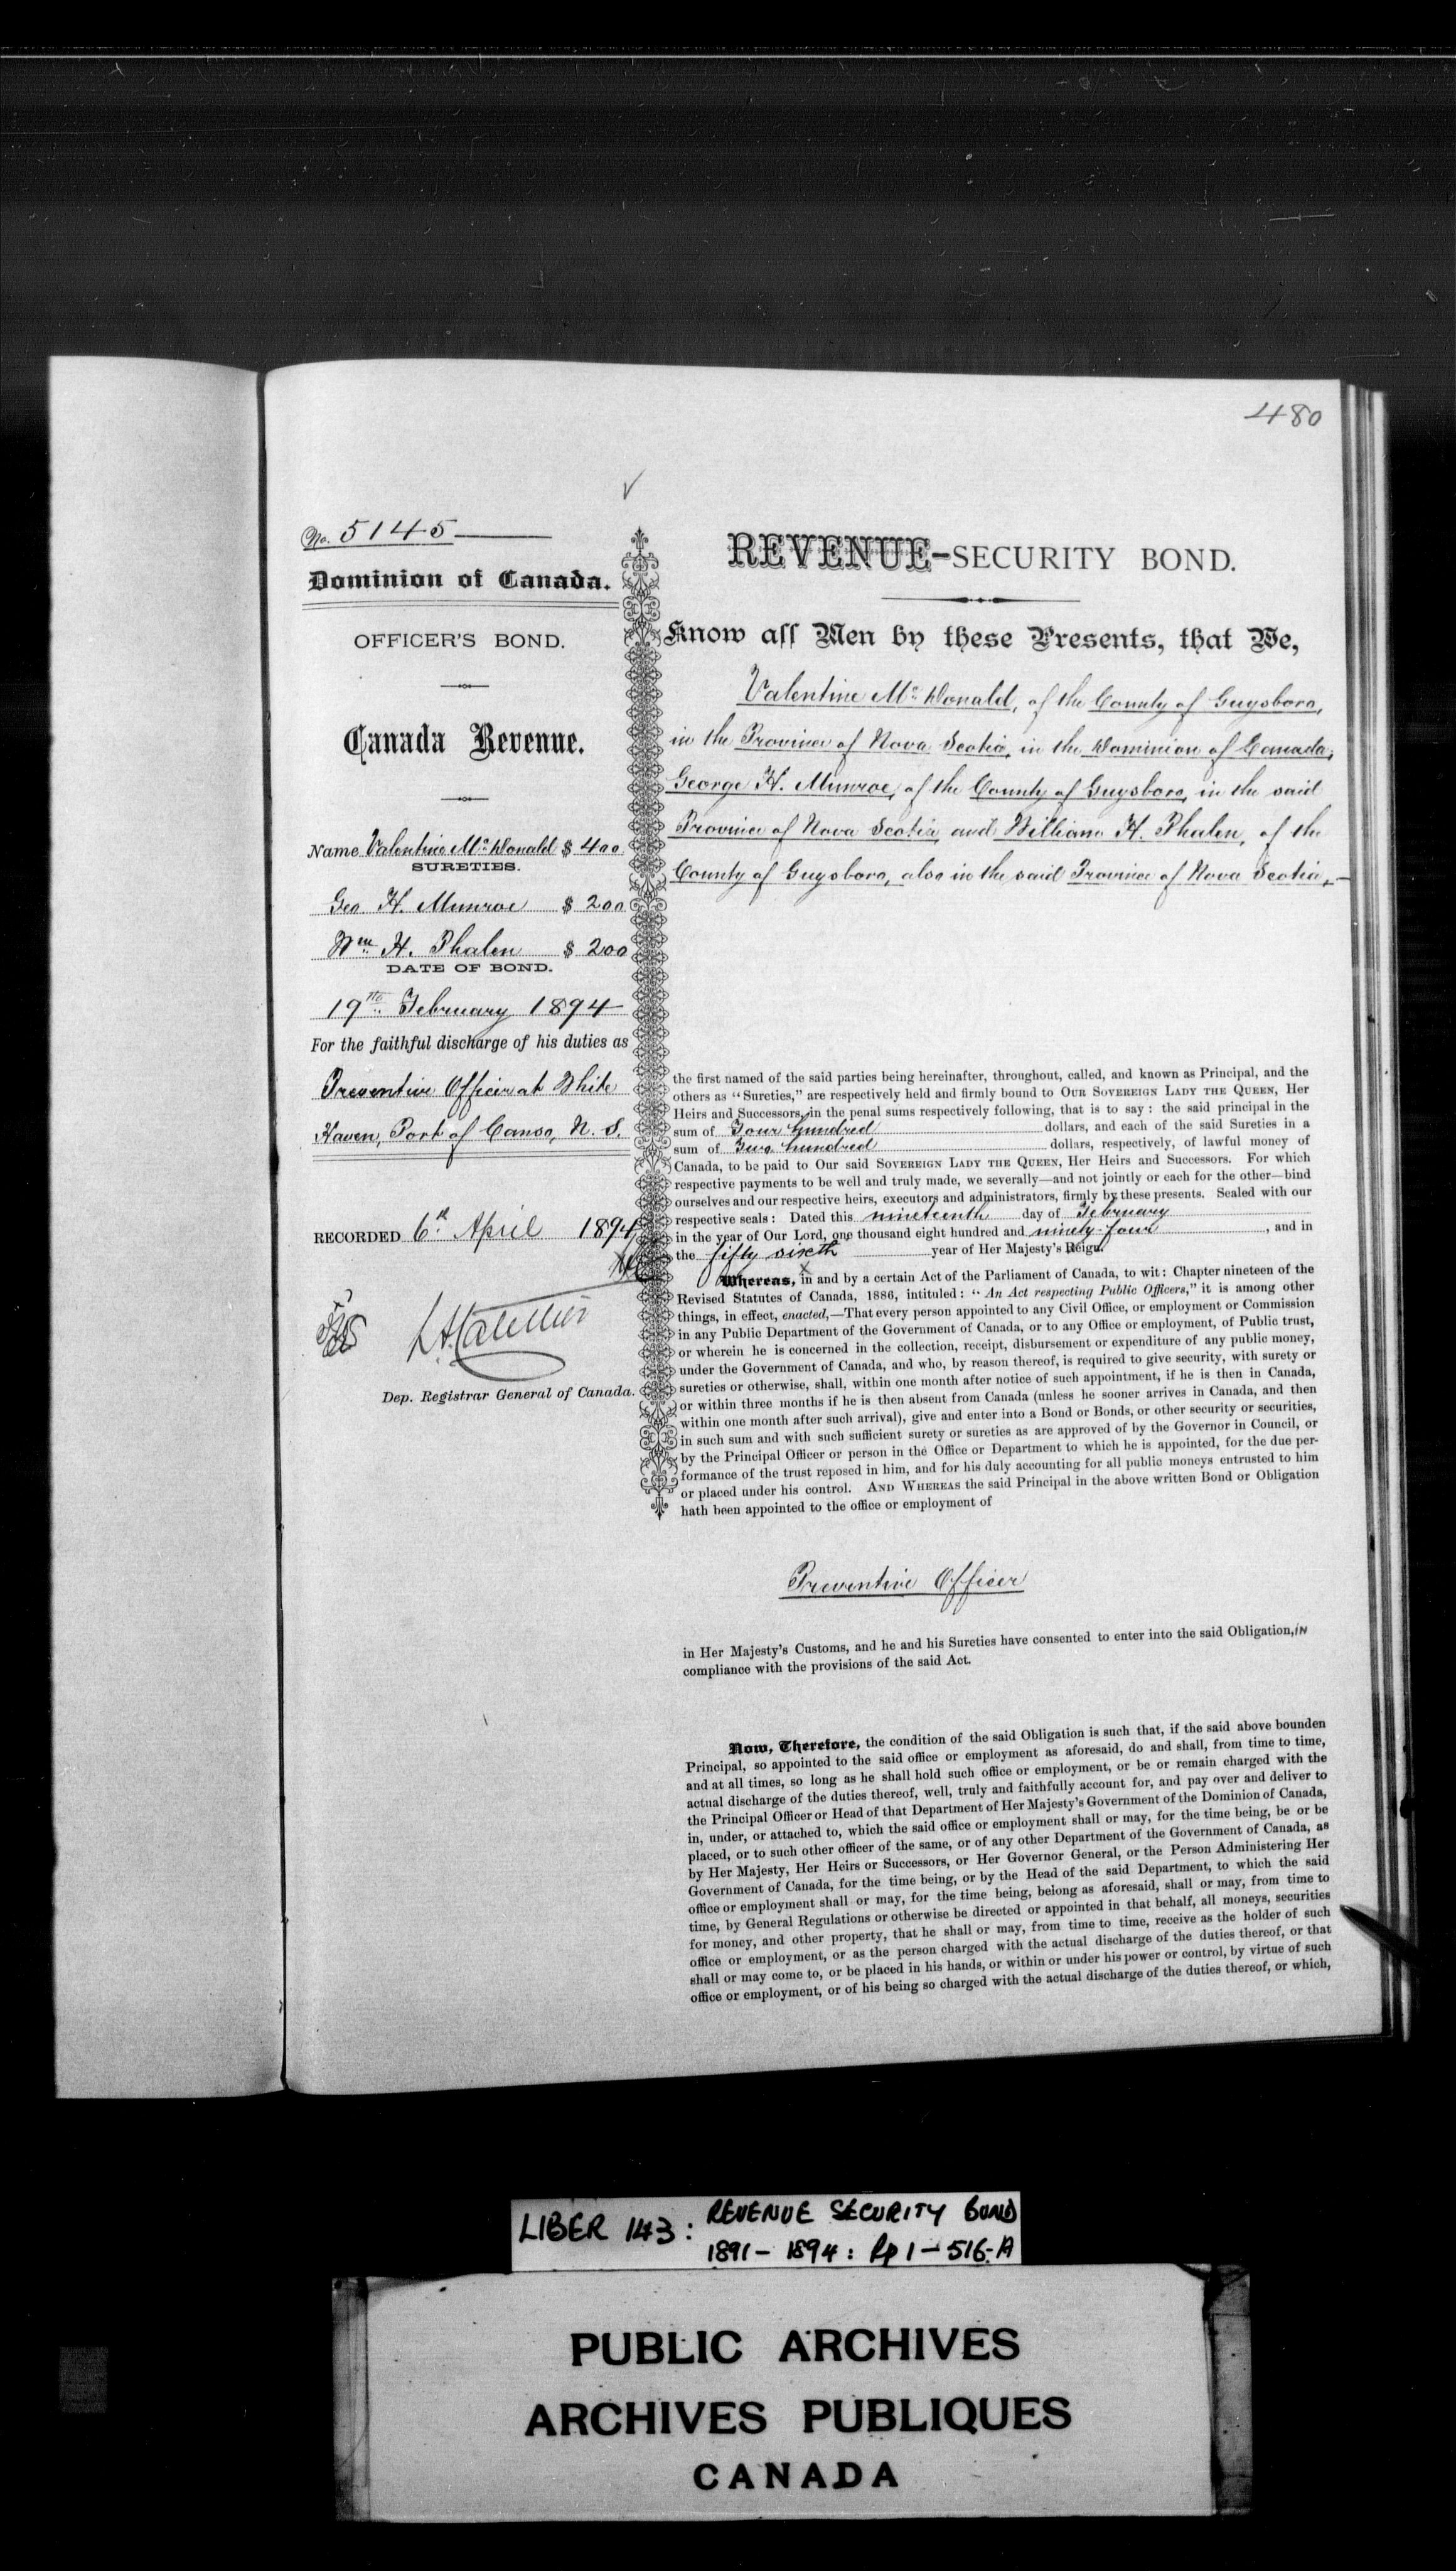 480
No. 5145
Dominion of Canada.
OFFICER'S BOND.
Canada Revenue.
Name Valentine Mc Donald $ 400
SURETIES.
Geo H. Munroe $ 200
Wm H. Phalen $ 200
DATE OF BOND.
19th February 1894
For the faithful discharge of his duties as
Preventive Officer at White
Haven, Port of Canso, N. S.
RECORDED 6th April 1894
Dep. Registrar General of Canada.
REVENUE-SECURITY BOND.
Know all Men by these Presents, that We,
Valentine Mc Donald, of the County of Guysboro,
in the Province of Nova Scotia, in the Dominion of Canada,
George H. Munroe, of the County of Guysboro, in the said
Province of Nova Scotia, and William H. Phalen, of the
County of Guysboro, also in the said Province of Nova Scotia,—
the first named of the said parties being hereinafter, throughout, called, and known as Principal, and the
others as "Sureties," are respectively held and firmly bound to OUR SOVEREIGN LADY THE QUEEN, Her
Heirs and Successors, in the penal sums respectively following, that is to say : the said principal in the
sum of Four hundred dollars, and each of the said Sureties in a
sum of Two hundred dollars, respectively, of lawful money of
Canada, to be paid to Our said SOVEREIGN LADY THE QUEEN, Her Heirs and Successors. For which
respective payments to be well and truly made, we severally—and not jointly or each for the other—bind
ourselves and our respective heirs, executors and administrators, firmly by these presents. Sealed with our
respective seals : Dated this nineteenth day of February
in the year of Our Lord, one thousand eight hundred and ninety-four, and in
the fifty sixth year of Her Majesty's Reign.
Whereas, in and by a certain Act of the Parliament of Canada, to wit: Chapter nineteen of the
Revised Statutes of Canada, 1886, intituled: "An Act respecting Public Officers," it is among other
things, in effect, enacted,—That every person appointed to any Civil Office, or employment or Commission
in any Public Department of the Government of Canada, or to any Office or employment, of Public trust,
or wherein he is concerned in the collection, receipt, disbursement or expenditure of any public money,
under the Government of Canada, and who, by reason thereof, is required to give security, with surety or
sureties or otherwise, shall, within one month after notice of such appointment, if he is then in Canada,
or within three months if he is then absent from Canada (unless he sooner arrives in Canada, and then
within one month after such arrival), give and enter into a Bond or Bonds, or other security or securities,
in such sum and with such sufficient surety or sureties as are approved of by the Governor in Council, or
by the Principal Officer or person in the Office or Department to which he is appointed, for the due per-
formance of the trust reposed in him, and for his duly accounting for all public moneys entrusted to him
or placed under his control. AND WHEREAS the said Principal in the above written Bond or Obligation
hath been appointed to the office or employment of
Preventive Officer
in Her Majesty's Customs, and he and his Sureties have consented to enter into the said Obligation, IN
compliance with the provisions of the said Act.
Now, Therefore, the condition of the said Obligation is such that, if the said above bounden
Principal, so appointed to the said office or employment as aforesaid, do and shall, from time to time,
and at all times, so long as he shall hold such office or employment, or be or remain charged with the
actual discharge of the duties thereof, well, truly and faithfully account for, and pay over and deliver to
the Principal Officer or Head of that Department of Her Majesty's Government of the Dominion of Canada,
in, under, or attached to, which the said office or employment shall or may, for the time being, be or be
placed, or to such other officer of the same, or of any other Department of the Government of Canada, as
by Her Majesty, Her Heirs or Successors, or Her Governor General, or the Person Administering Her
Government of Canada, for the time being, or by the Head of the said Department, to which the said
office or employment shall or may, for the time being, belong as aforesaid, shall or may, from time to
time, by General Regulations or otherwise be directed or appointed in that behalf, all moneys, securities
for money, and other property, that he shall or may, from time to time, receive as the holder of such
office or employment, or as the person charged with the actual discharge of the duties thereof, or that
shall or may come to, or be placed in his hands, or within or under his power or control, by virtue of such
office or employment, or of his being so charged with the actual discharge of the duties thereof, or which,
LIBER 143: REVENUE SECURITY BOND
1891-1894: Pp 1-516-A
PUBLIC ARCHIVES
ARCHIVES PUBLIQUES
CANADA